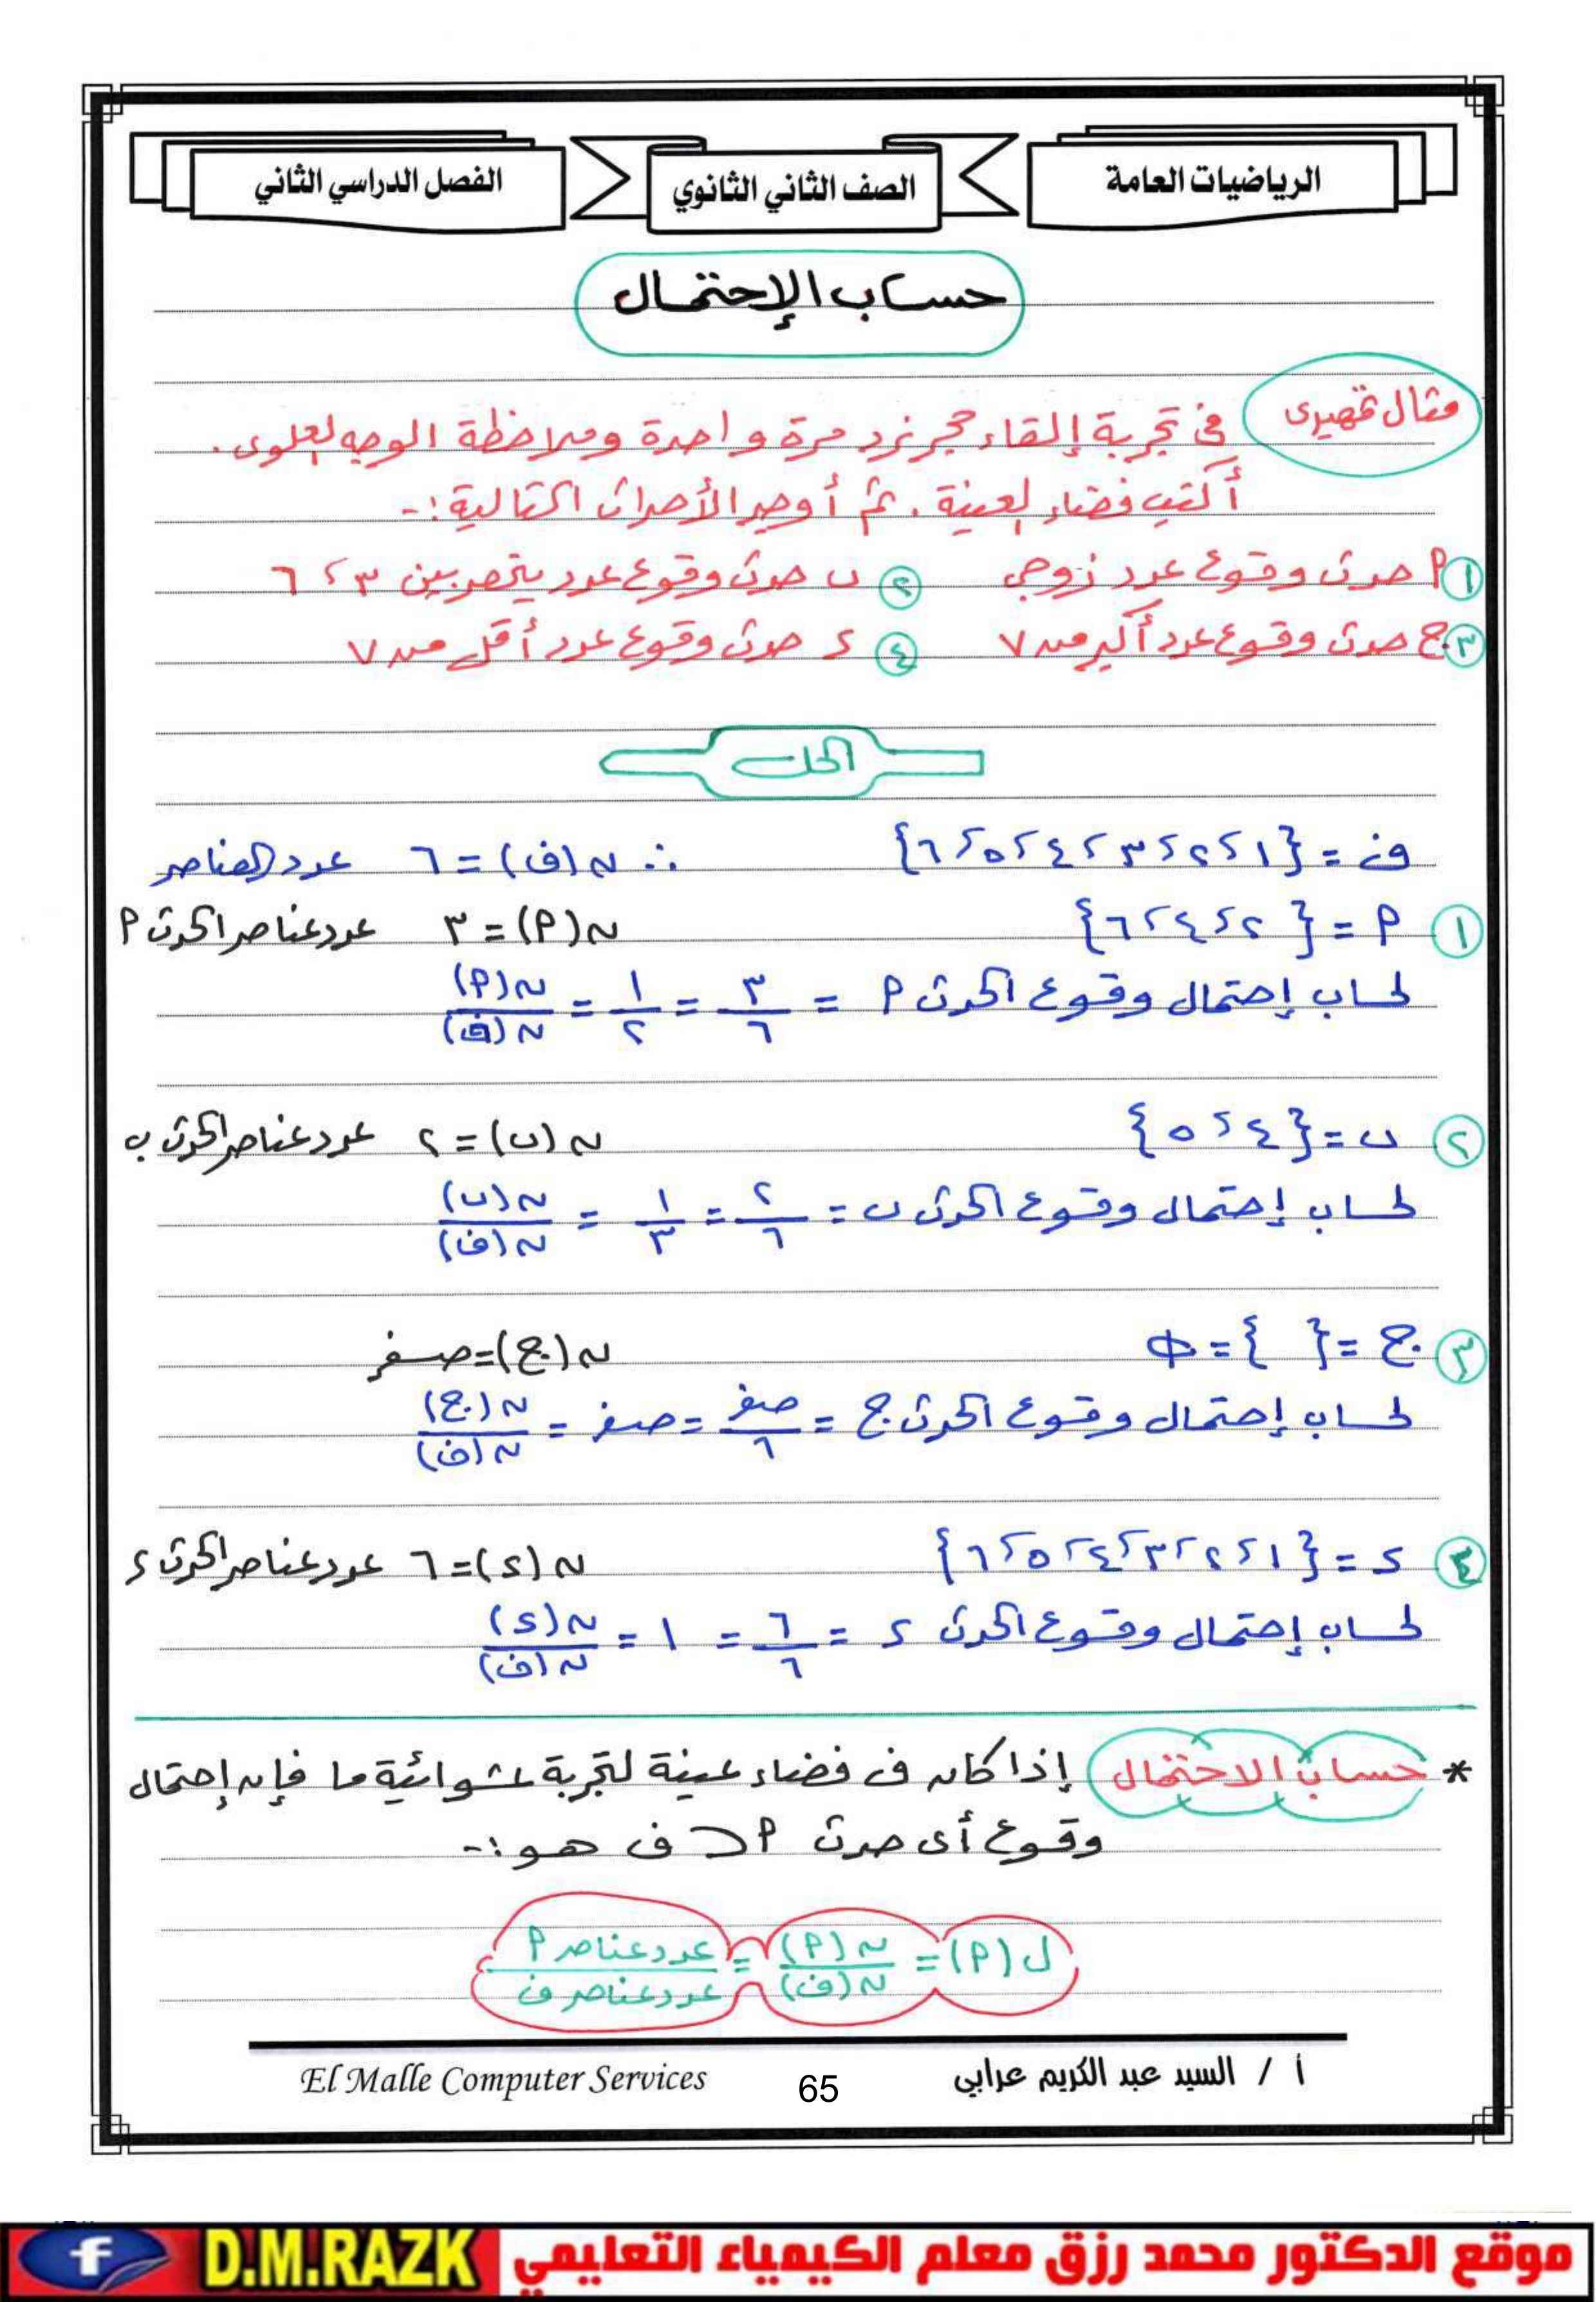 الرياضيات العامة
الصف الثاني الثانوي
الفصل الدراسي الثاني
حساب الإحتمال
مثال تمهيدى
في تجربة إلقاء حجر نرد مرة واحدة وملاحظة الوجه العلوى.
أكتب فضاء العينة . ثم أوجد الأحداث التالية :-
١ P حدث وقوع عدد زوجي
٢ ب حدث وقوع عدد ينحصر بين ٣ ، ٦
٣ ج حدث وقوع عدد أكبر من ٧
٤ د حدث وقوع عدد أقل من ٧
الحل
ف = {١ ، ٢ ، ٣ ، ٤ ، ٥ ، ٦} ∴ ن (ف) = ٦ عدد العناصر
١ P = {٢ ، ٤ ، ٦} ن (P) = ٣ عدد عناصر الحدث P
لحساب إحتمال وقوع الحدث P = ٣/٦ = ١/٢ = ن (P) / ن (ف)
٢ ب = {٤ ، ٥} ن (ب) = ٢ عدد عناصر الحدث ب
لحساب إحتمال وقوع الحدث ب = ٢/٦ = ١/٣ = ن (ب) / ن (ف)
٣ ج = { } = Φ ن (ج) = صفر
لحساب إحتمال وقوع الحدث ج = صفر/٦ = صفر = ن (ج) / ن (ف)
٤ د = {١ ، ٢ ، ٣ ، ٤ ، ٥ ، ٦} ن (د) = ٦ عدد عناصر الحدث د
لحساب إحتمال وقوع الحدث د = ٦/٦ = ١ = ن (د) / ن (ف)
* حساب الاحتمال إذا كان ف فضاء عينة لتجربة عشوائية ما فإن إحتمال
وقوع أى حدث P ⊂ ف هو :-
ل (P) = ن (P) / ن (ف) = عدد عناصر P / عدد عناصر ف
أ / السيد عبد الكريم عرابي
65
El Malle Computer Services
موقع الدكتور محمد رزق معلم الكيمياء التعليمي
D.M.RAZK
f